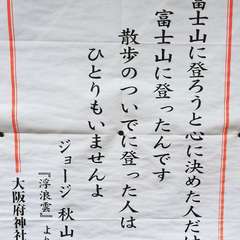 富士山に登ろうと心に決めた人だけ
富士山に登ったんです
散歩のついでに登った人は
ひとりもいませんよ
ジョージ秋山
『浮浪雲』より
大阪府神社